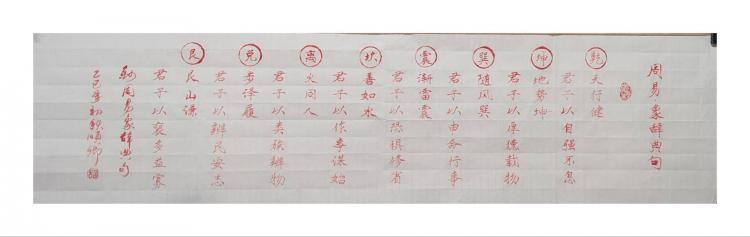 周易象辞典句
乾
天行健
君子以自强不息
坤
地势坤
君子以厚德载物
巽
随风巽
君子以由命行事
震
渐雷震
君子以恐惧修省
坎
善如水
君子以作事谋始
离
火同人
君子以类族辨物
兑
步泽履
君子以辨民安志
艮
艮山谦
君子以裒多益寡
周易象辞典句
乙巳 初 順卿